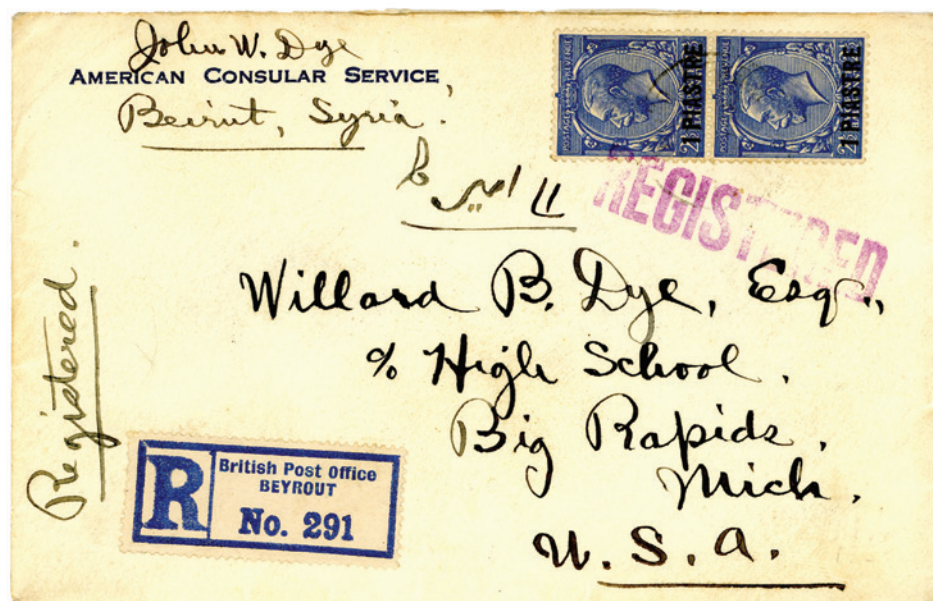 John W. Dye
AMERICAN CONSULAR SERVICE,
Beirut, Syria.
POSTAGE REVENUE
2½
1 PIASTRE
POSTAGE REVENUE
2½
1 PIASTRE
REGISTERED
Willard B. Dye, Esq.,
% High School.
Big Rapids,
Mich.
U. S. A.
Registered.
R
British Post Office
BEYROUT
No. 291